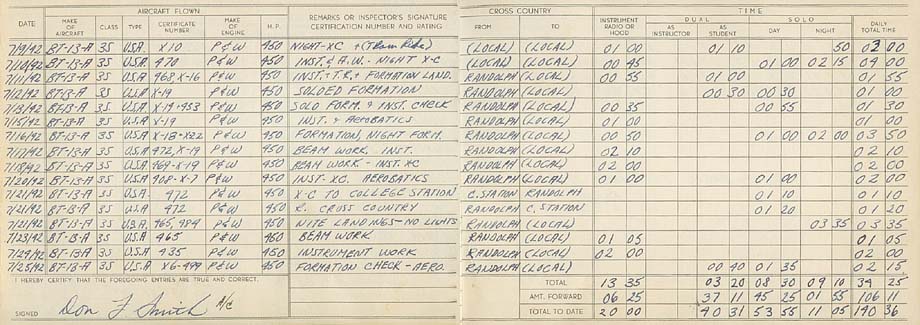 AIRCRAFT FLOWN CROSS COUNTRY TIME
DATE MAKE OF AIRCRAFT CLASS TYPE CERTIFICATE NUMBER MAKE OF ENGINE H.P. REMARKS OR INSPECTOR'S SIGNATURE CERTIFICATION NUMBER AND RATING FROM TO INSTRUMENT RADIO OR HOOD DUAL AS INSTRUCTOR AS STUDENT SOLO DAY NIGHT DAILY TOTAL TIME
7/9/42 BT-13-A 3S U.S.A. X10 P&W 450 NIGHT-XC + (LOCAL) (LOCAL) 01 00 01 10 50 03 00
7/10/42 BT-13-A 3S U.S.A. 470 P&W 450 INST. & A.W. - NIGHT XC (LOCAL) (LOCAL) 00 45 01 00 02 15 04 00
7/11/42 BT-13-A 3S U.S.A. 468, X-16 P&W 450 INST. + T.R. + FORMATION LAND. RANDOLPH (LOCAL) 00 55 01 00 01 55
7/12/42 BT-13-A 3S U.S.A. X-19 P&W 450 SOLOED FORMATION RANDOLPH (LOCAL) 00 30 00 30 01 00
7/13/42 BT-13-A 3S U.S.A. X-19+453 P&W 450 SOLO FORM. + INST. CHECK RANDOLPH (LOCAL) 00 35 00 55 01 30
7/15/42 BT-13-A 3S U.S.A. X-19 P&W 450 INST. + AEROBATICS RANDOLPH (LOCAL) 01 00 01 00
7/16/42 BT-13-A 3S U.S.A. X-18+X22 P&W 450 FORMATION, NIGHT FORM. RANDOLPH (LOCAL) 00 50 01 00 02 00 03 50
7/17/42 BT-13-A 3S U.S.A. 472, X-19 P&W 450 BEAM WORK. INST. RANDOLPH (LOCAL) 02 10 02 10
7/18/42 BT-13-A 3S U.S.A. 469-X-19 P&W 450 BEAM WORK - INST. XC RANDOLPH (LOCAL) 02 00 02 00
7/20/42 BT-13-A 3S U.S.A. 408-X-7 P&W 450 INST. XC. AEROBATICS RANDOLPH (LOCAL) 01 00 01 00 02 00
7/21/42 BT-13-A 3S U.S.A. 472 P&W 450 X-C TO COLLEGE STATION C. STATION RANDOLPH 01 10 01 10
7/21/42 BT-13-A 3S U.S.A. 472 P&W 450 R. CROSS COUNTRY RANDOLPH C. STATION 01 20 01 20
7/21/42 BT-13-A 3S U.S.A. 465, 484 P&W 450 NITE LANDINGS-NO LIGHTS RANDOLPH (LOCAL) 03 35 03 35
7/23/42 BT-13-A 3S U.S.A. 465 P&W 450 BEAM WORK RANDOLPH (LOCAL) 01 05 01 05
7/24/42 BT-13A 3S U.S.A. 435 P&W 450 INSTRUMENT WORK RANDOLPH (LOCAL) 02 00 02 00
7/25/42 BT-13-A 3S U.S.A. X6-499 P&W 450 FORMATION CHECK - AERO. RANDOLPH (LOCAL) 00 40 01 35 02 15
I HEREBY CERTIFY THAT THE FOREGOING ENTRIES ARE TRUE AND CORRECT. TOTAL 13 35 03 20 08 30 09 10 34 25
AMT. FORWARD 06 25 37 11 45 25 01 55 106 11
SIGNED Don L Smith A/C TOTAL TO DATE 20 00 40 31 53 55 11 05 140 36